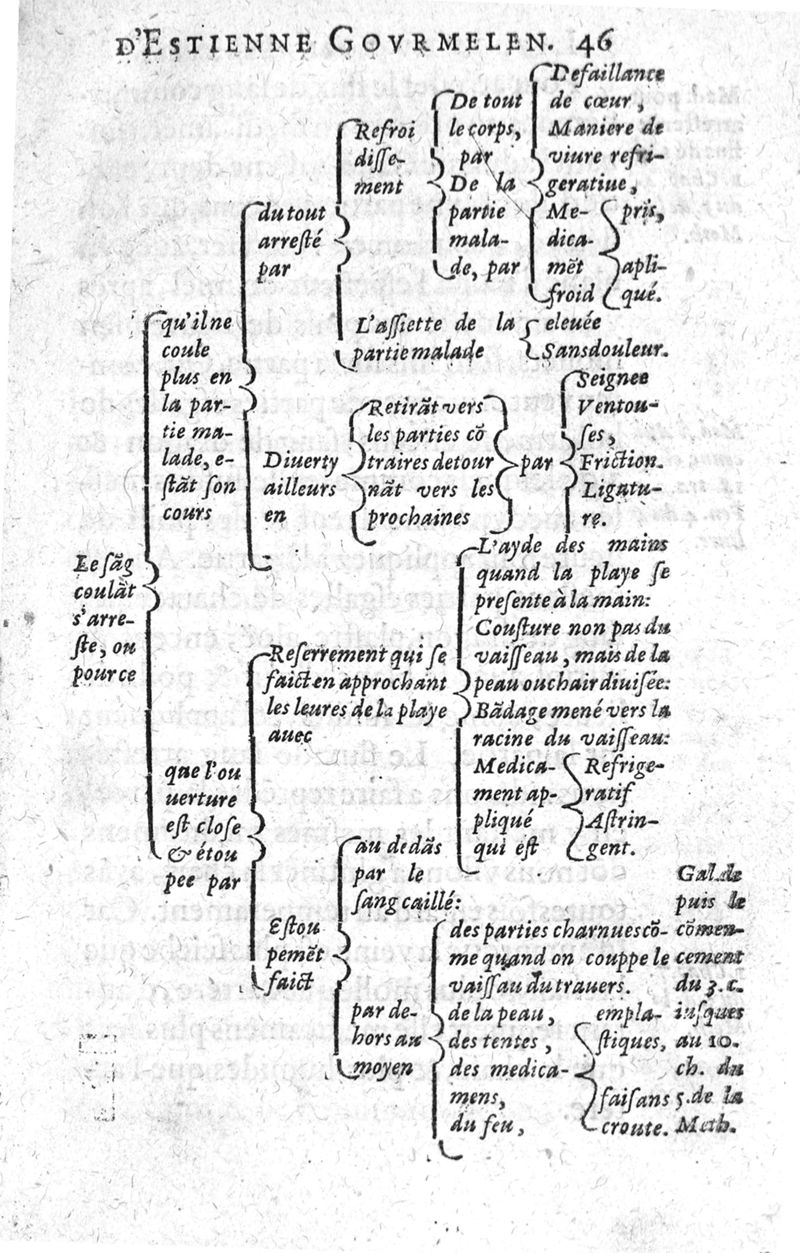 D'ESTIENNE GOVRMELEN. 46
Le sãg
coulãt
s'arre-
ste, ou
pource
qu'il ne
coule
plus en
la par-
tie ma-
lade, e-
stãt son
cours
du tout
arresté
par
Refroi
disse-
ment
De tout
le corps,
par
De la
partie
mala-
de, par
Defaillance
de cœur,
Maniere de
viure refri-
geratiue,
Me-
dica-
mẽt
froid
pris,
apli-
qué.
L'assiette de la
partie malade
eleuée
Sans douleur.
Diuerty
ailleurs
en
Retirãt vers
les parties cõ
traires detour
nãt vers les
prochaines
par
Seignee
Ventou-
ses,
Friction.
Ligatu-
re.
que l'ou
uerture
est close
& étou
pee par
Reserrement qui se
faict en approchant
les leures de la playe
auec
L'ayde des mains
quand la playe se
presente à la main:
Cousture non pas du
vaisseau, mais de la
peau ou chair diuisée:
Bãdage mené vers la
racine du vaisseau:
Medica-
ment ap-
pliqué
qui est
Refrige-
ratif
Astrin-
gent.
Estou
pemẽt
faict
au dedãs
par le
sang caillé:
par de-
hors au
moyen
des parties charnues cõ-
me quand on couppe le
vaissau du trauers.
de la peau,
des tentes,
des medica-
mens,
du feu,
empla-
stiques,
faisans
croute.
Gal. de
puis le
cõmen-
cement
du 3. c.
iusques
au 10.
ch. du
5. de la
Meth.